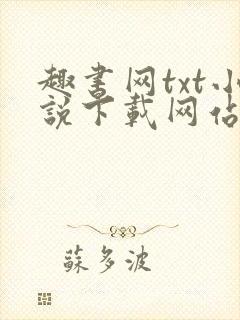 趣书网txt小
說下載网站
蘇多波